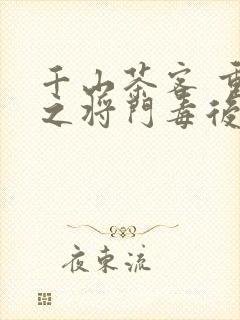 千山茶客 重
之将门毒后
夜東流